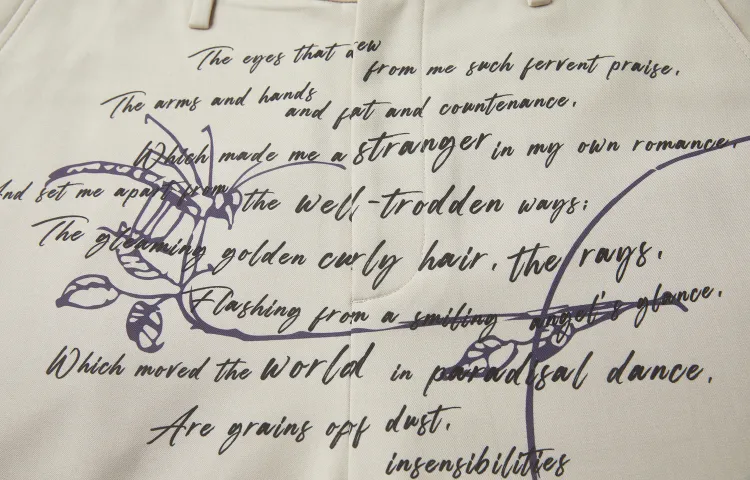 The eyes that dew from me such fervent praise,
The arms and hands and fat and countenance,
Which made me a stranger in my own romance,
And set me apart from the well-trodden ways;
The gleaming golden curly hair, the rays,
Flashing from a smiling angel's glance,
Which moved the world in paradisal dance,
Are grains opf dust,
insensibilities